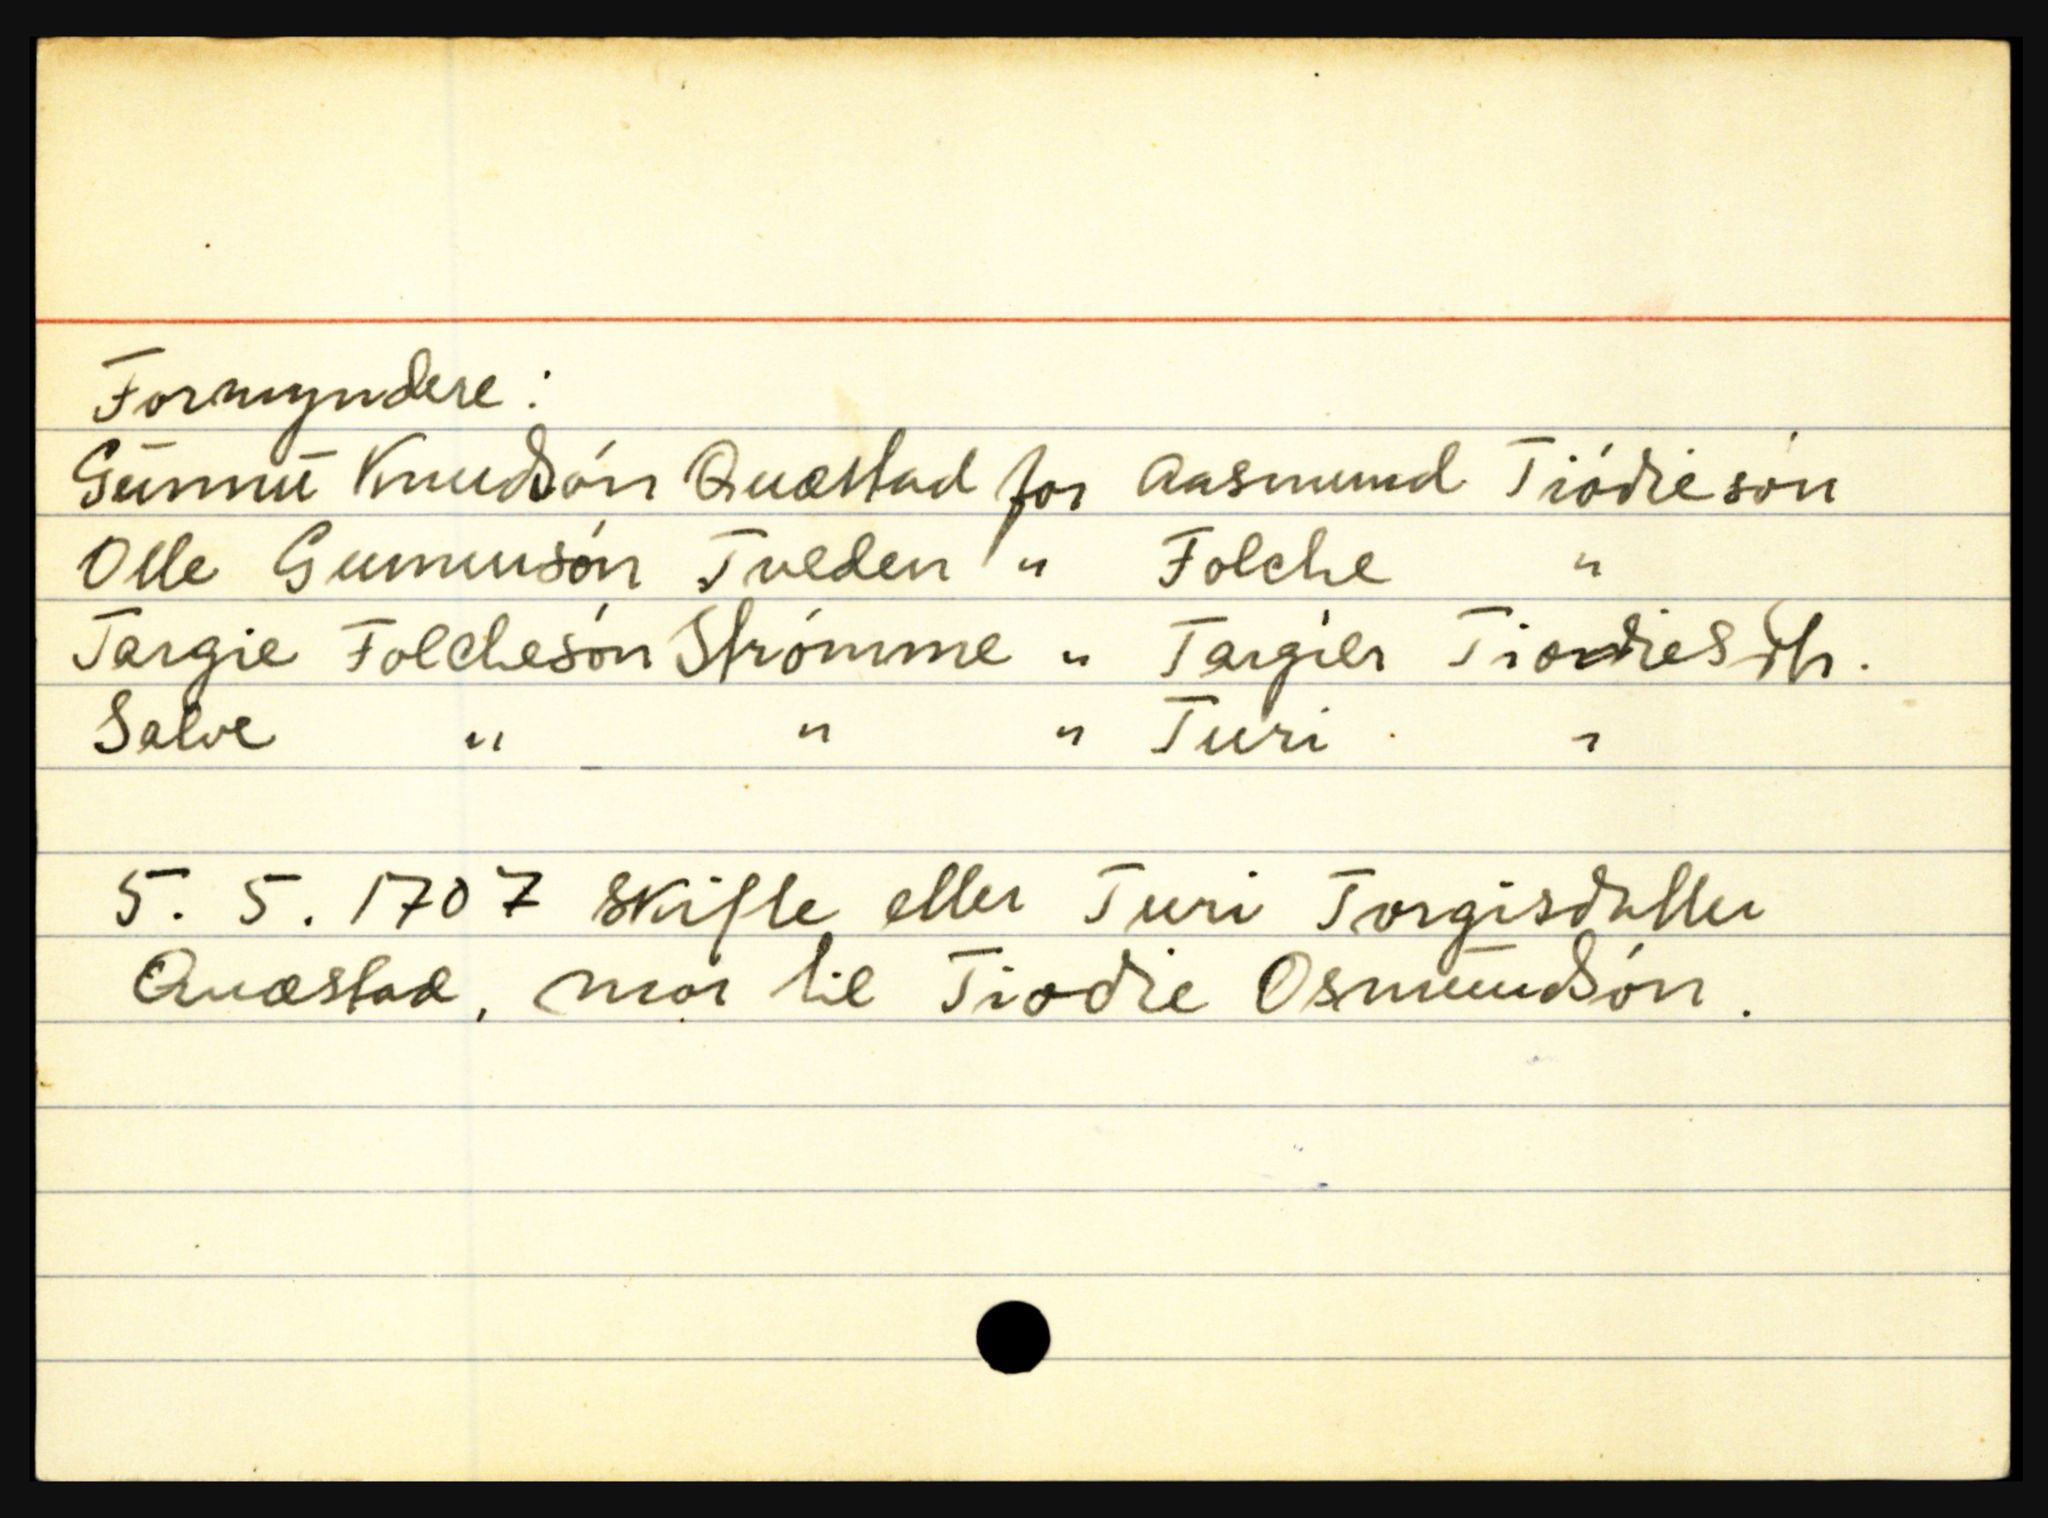 Formyndere:
Gunnu Knudsón Quæstad for Aasmund Tiódiesón
Olle Gunnusón Tveden " Folche "
Targie Folchesón Strómme " Targier Tiodiesdtr.
Salve " " " Turi "
5. 5. 1707 skifte etter Turi Torgisdatter
Quæstad, mor til Tiodie Osmundsón.